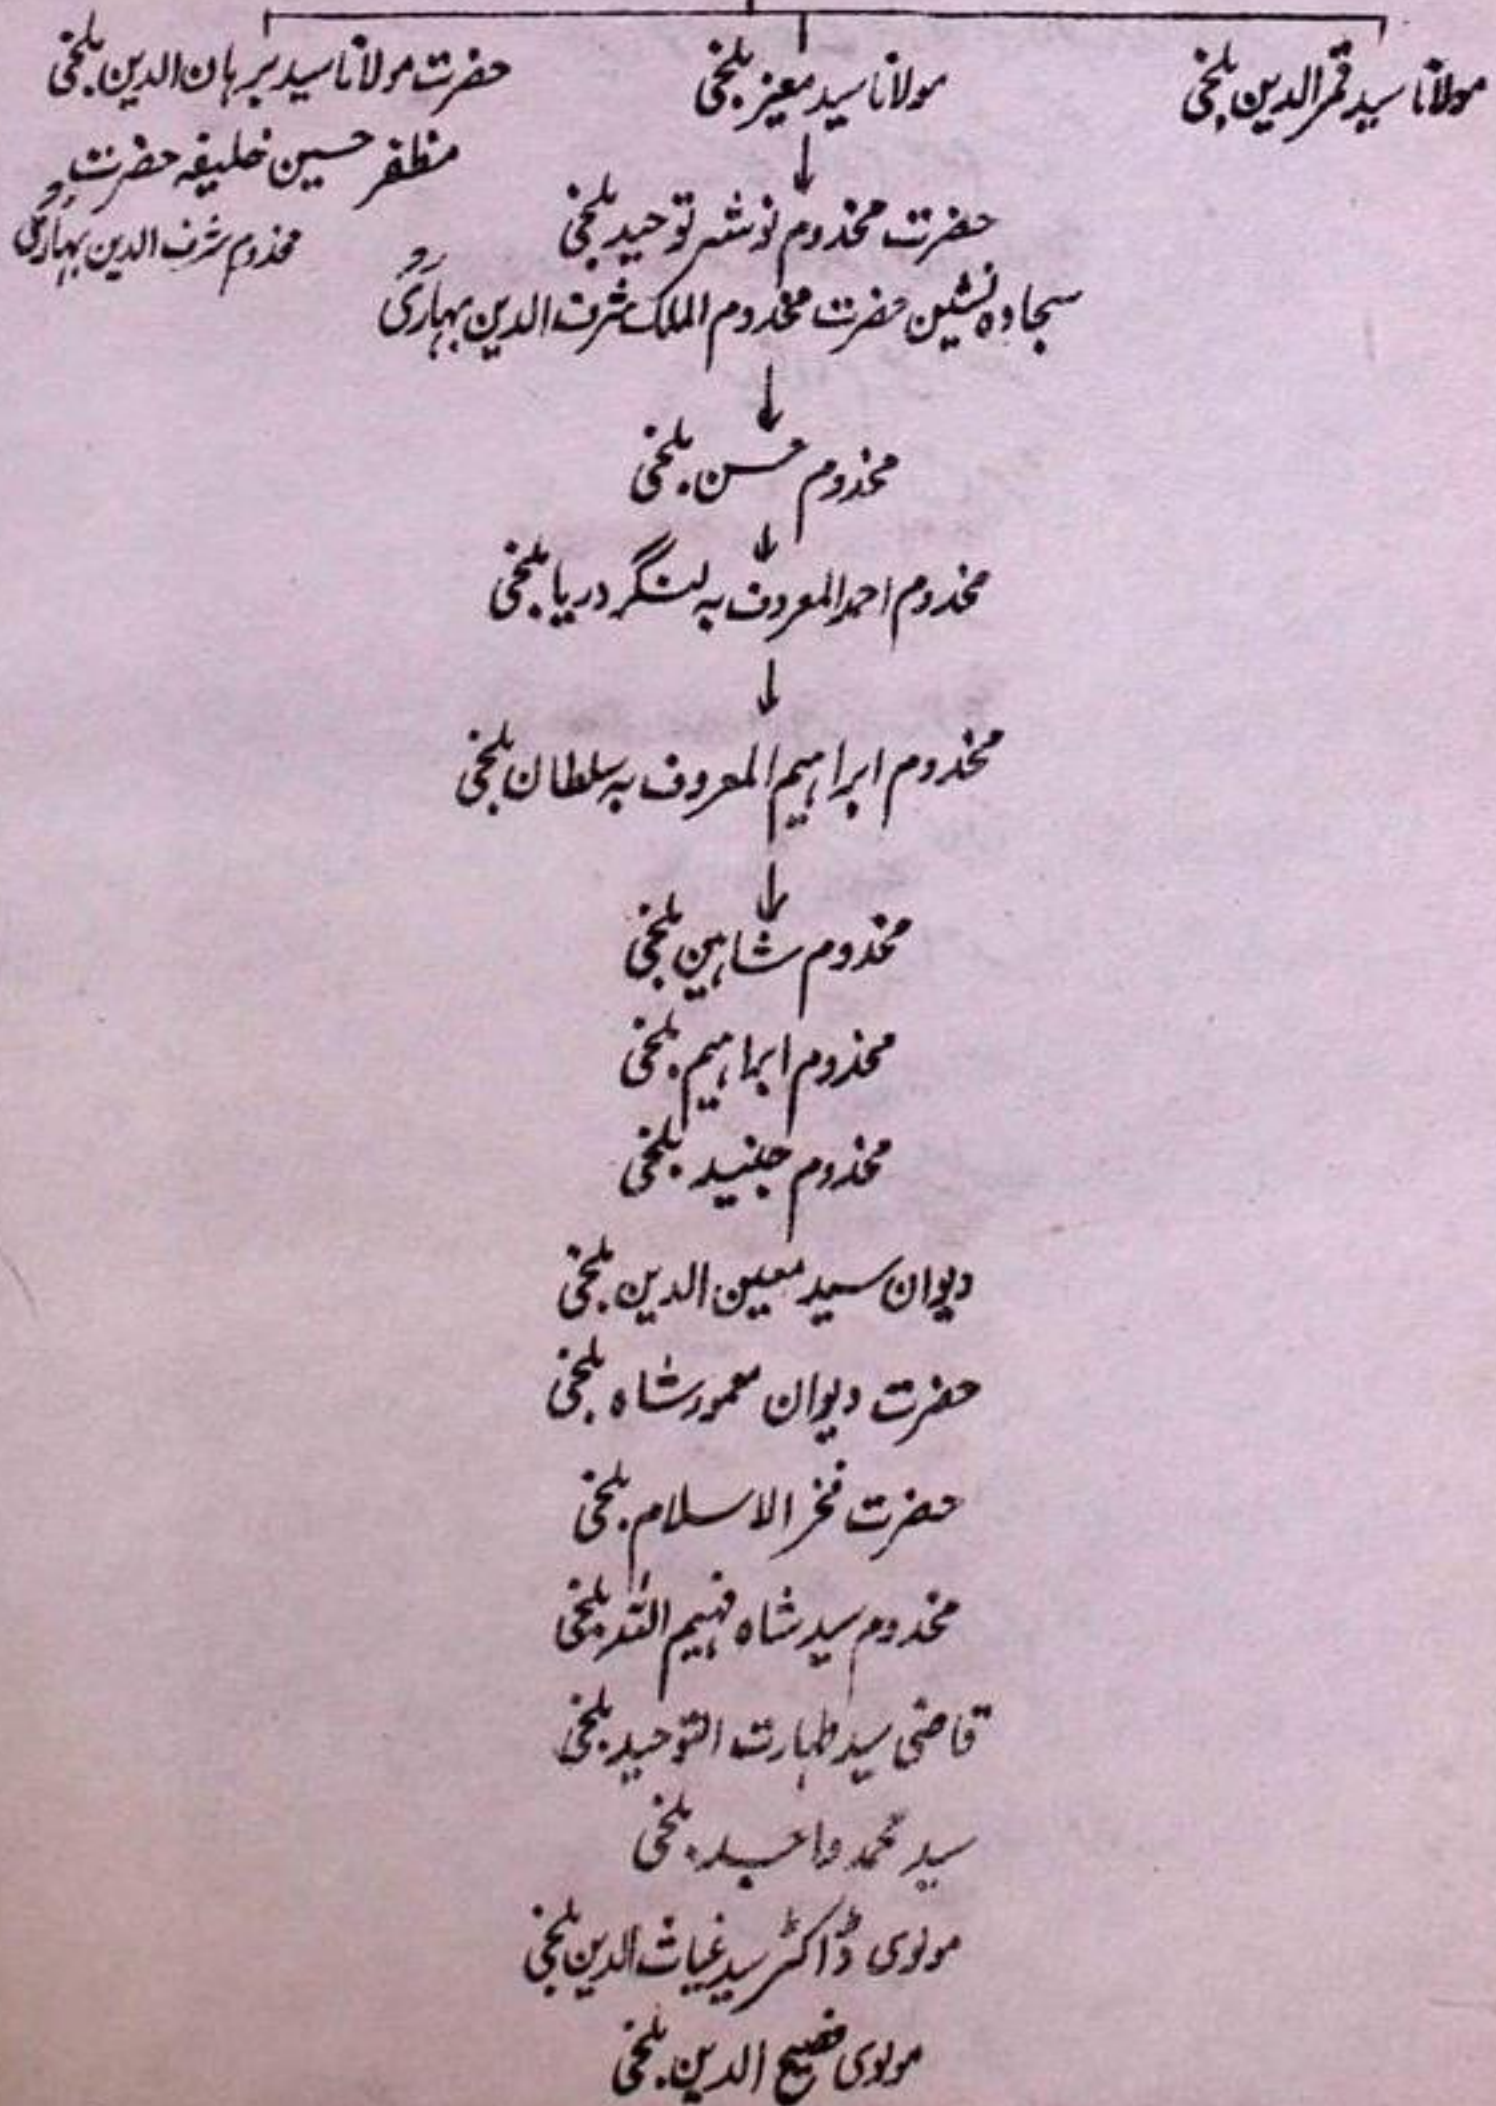 مولانا سید قمر الدین بلخی
مولانا سید معیز بلخی
حضرت مولانا سید برہان الدین بلخی
مظفر حسین خلیفہ حضرت
مخدوم شرف الدین بہاریؒ
حضرت مخدوم نوشہ توحید بلخی
سجادہ نشین حضرت مخدوم الملک شرف الدین بہاریؒ
مخدوم حسن بلخی
مخدوم احمد المعروف بہ لنگر دریا بلخی
مخدوم ابراہیم المعروف بہ سلطان بلخی
مخدوم شاہین بلخی
مخدوم ابراہیم بلخی
مخدوم جنید بلخی
دیوان سید معین الدین بلخی
حضرت دیوان معمور شاہ بلخی
حضرت فخر الاسلام بلخی
مخدوم سید شاہ فہیم اللہ بلخی
قاضی سید طہارت التوحید بلخی
سید محمد واجد بلخی
مولوی ڈاکٹر سید غیاث الدین بلخی
مولوی فصیح الدین بلخی